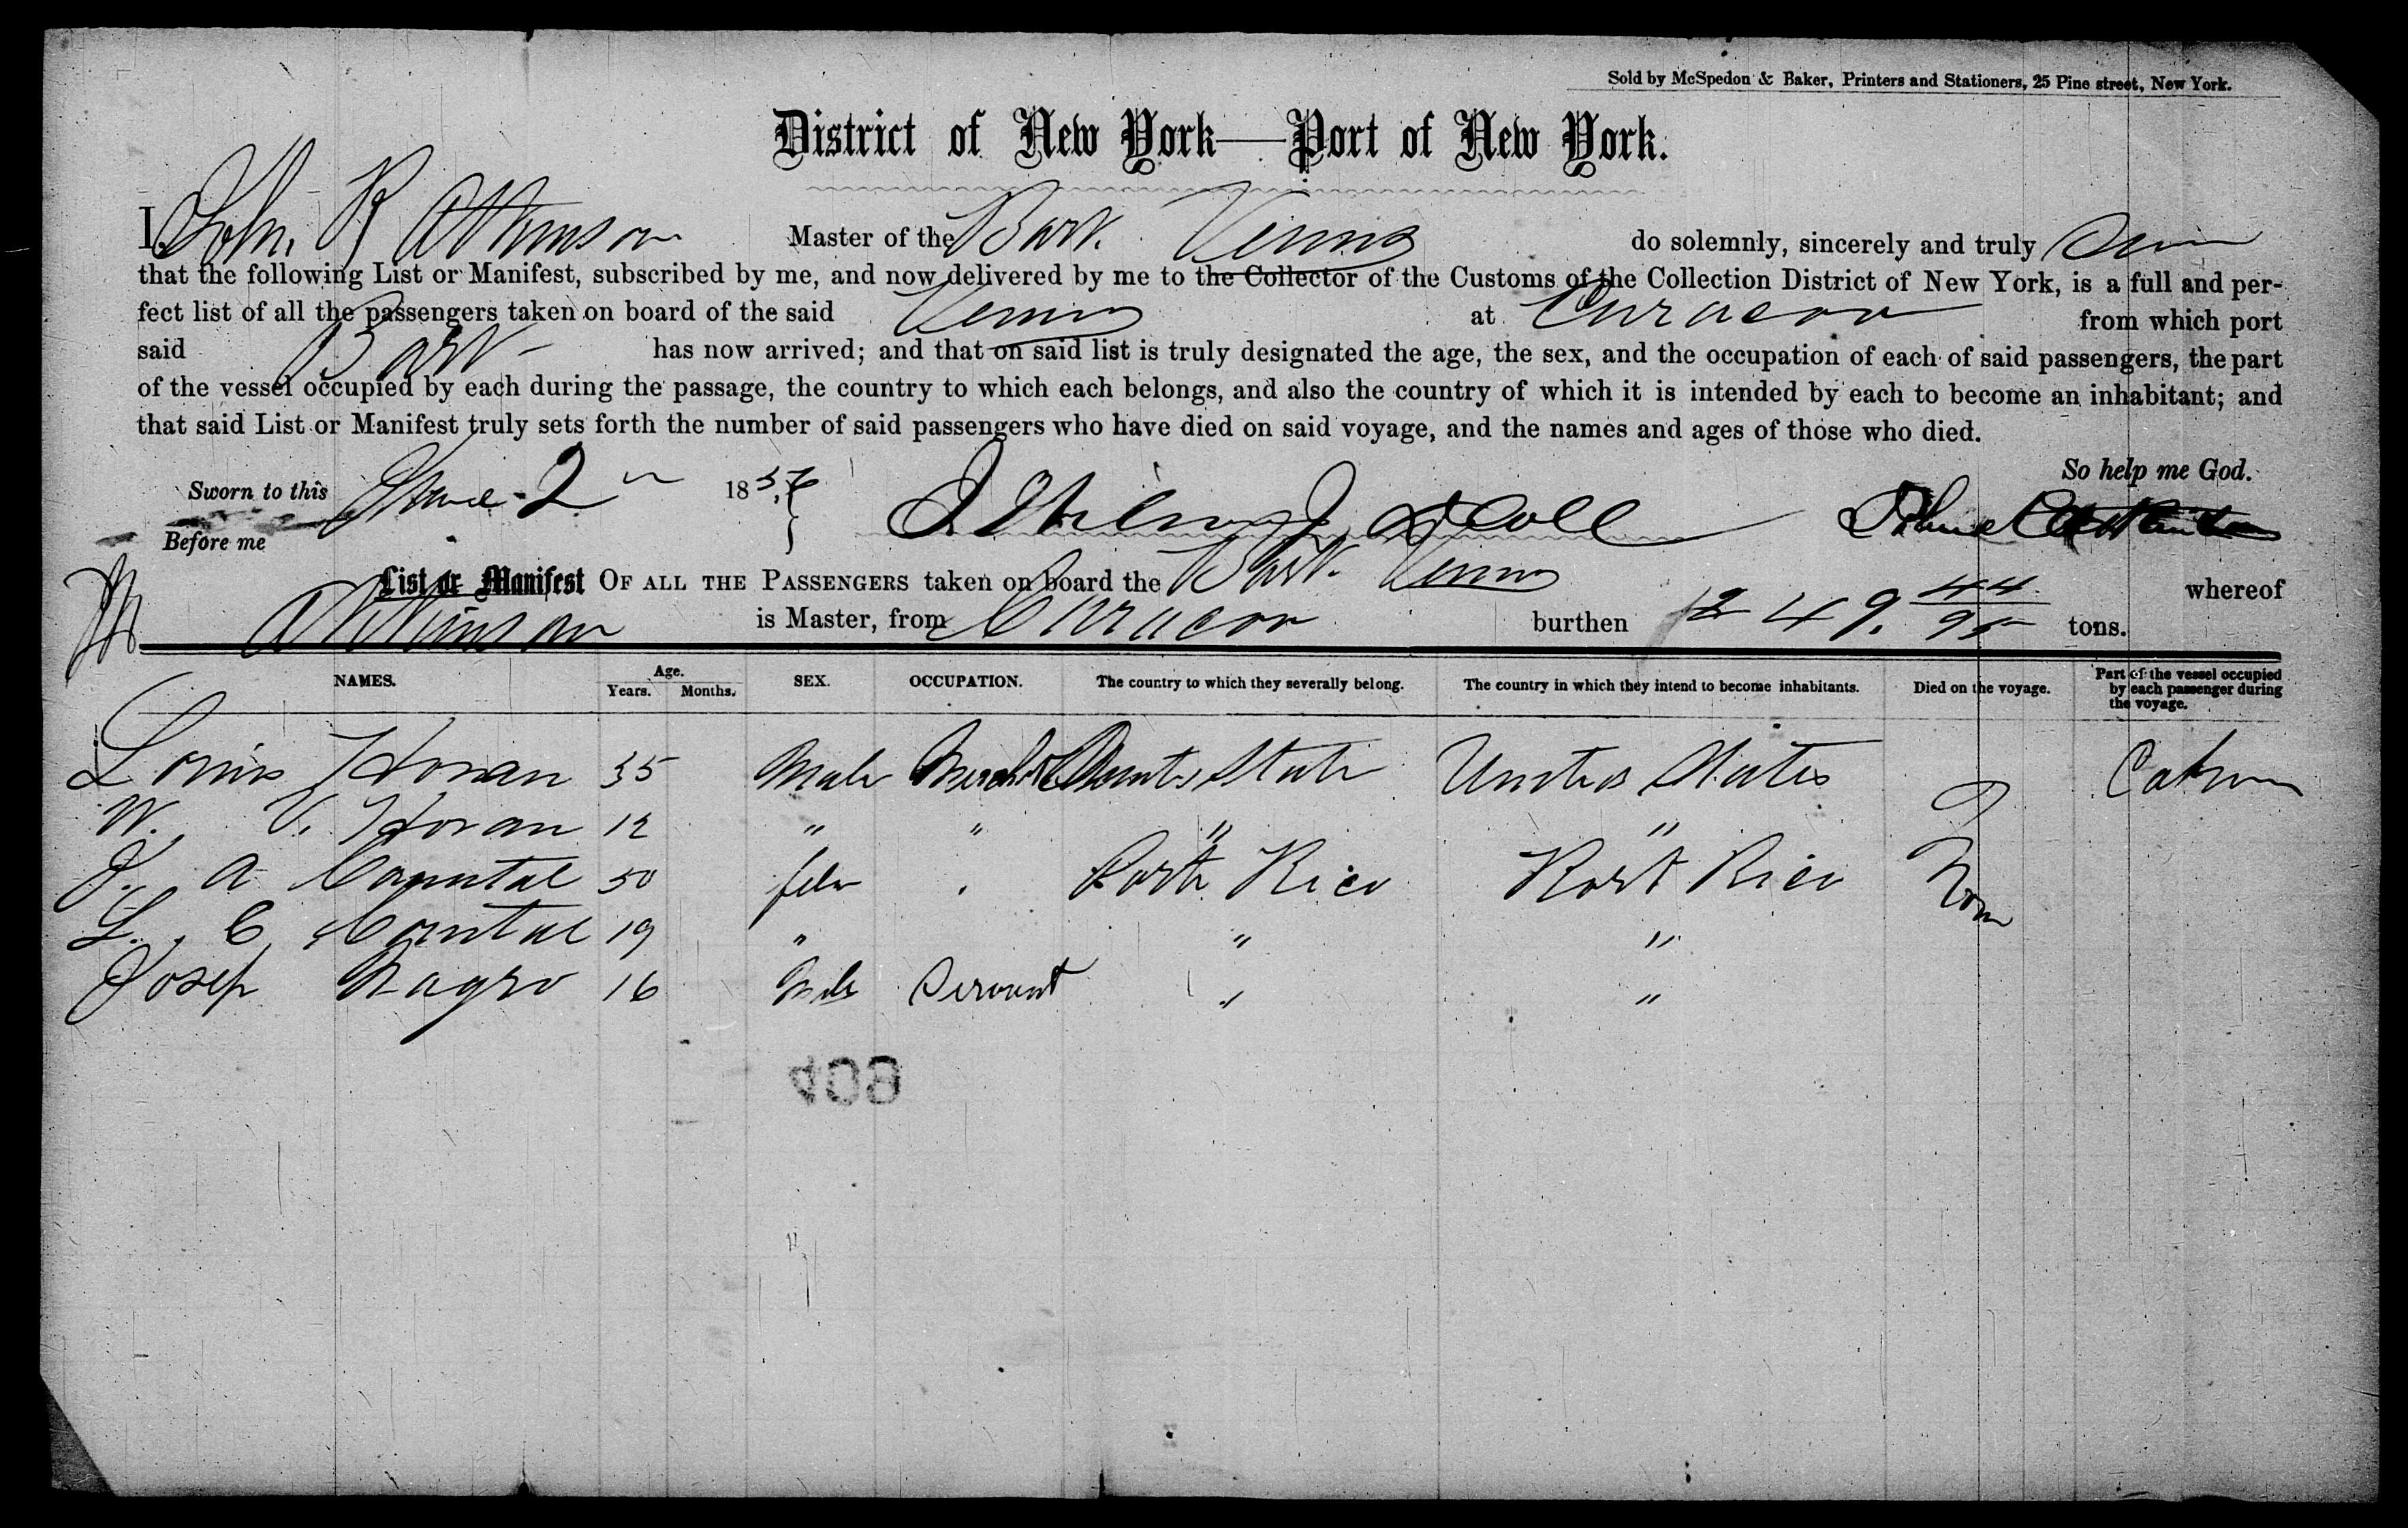 Sold by McSpedon & Baker, Printers and Stationers, 25 Pine street, New York.
District of New York—Port of New York.
I, John R Atkinson Master of the Bark Venus do solemnly, sincerely and truly
that the following List or Manifest, subscribed by me, and now delivered by me to the Collector of the Customs of the Collection District of New York, is a full and per-
fect list of all the passengers taken on board of the said Venus at Curacoa from which port
said Bark has now arrived; and that on said list is truly designated the age, the sex, and the occupation of each of said passengers, the part
of the vessel occupied by each during the passage, the country to which each belongs, and also the country of which it is intended by each to become an inhabitant; and
that said List or Manifest truly sets forth the number of said passengers who have died on said voyage, and the names and ages of those who died.
So help me God.
Sworn to this June 2 185
Before me
List or Manifest OF ALL THE PASSENGERS taken on board the Bark Venus whereof
Atkinson is Master, from Curacoa burthen 249. 44/95 tons.
NAMES. Age. Years. Months. SEX. OCCUPATION. The country to which they severally belong. The country in which they intend to become inhabitants. Died on the voyage. Part of the vessel occupied by each passenger during the voyage.
Louis Horan 35 Male United States
W. V. Horan 12 " " " "
J. A 50 Port Rico Port Rico
L. C 19 " " "
Josep Nagro 16 Male Servant " "
409